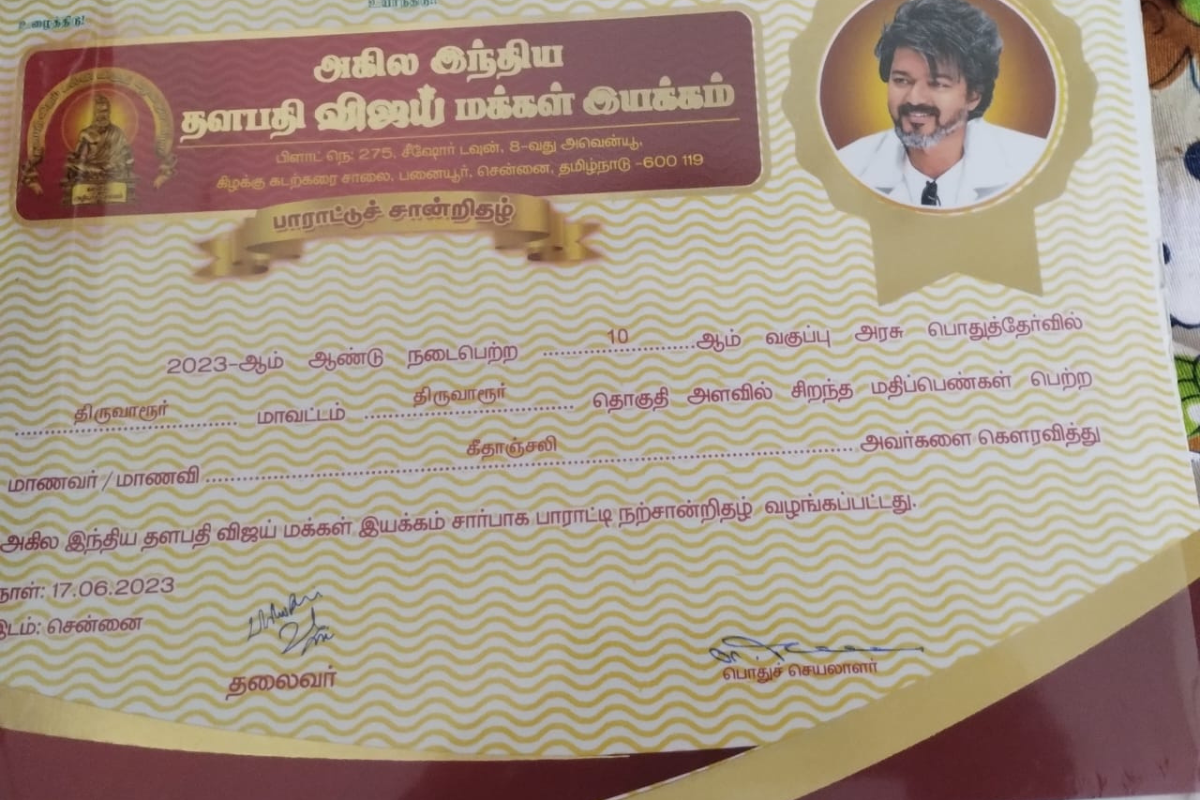 உழைத்திடு!
உயர்ந்திடு!!
அகில இந்திய
தளபதி விஜய் மக்கள் இயக்கம்
பிளாட் நெ: 275, சீஷோர் டவுன், 8-வது அவென்யூ,
கிழக்கு கடற்கரை சாலை, பனையூர், சென்னை, தமிழ்நாடு -600 119
பாராட்டுச் சான்றிதழ்
2023-ஆம் ஆண்டு நடைபெற்ற 10 ஆம் வகுப்பு அரசு பொதுத்தேர்வில்
திருவாரூர் மாவட்டம் திருவாரூர் தொகுதி அளவில் சிறந்த மதிப்பெண்கள் பெற்ற
மாணவர் / மாணவி கீதாஞ்சலி அவர்களை கௌரவித்து
அகில இந்திய தளபதி விஜய் மக்கள் இயக்கம் சார்பாக பாராட்டி நற்சான்றிதழ் வழங்கப்பட்டது.
நாள்: 17.06.2023
இடம்: சென்னை
தலைவர்
பொதுச் செயலாளர்